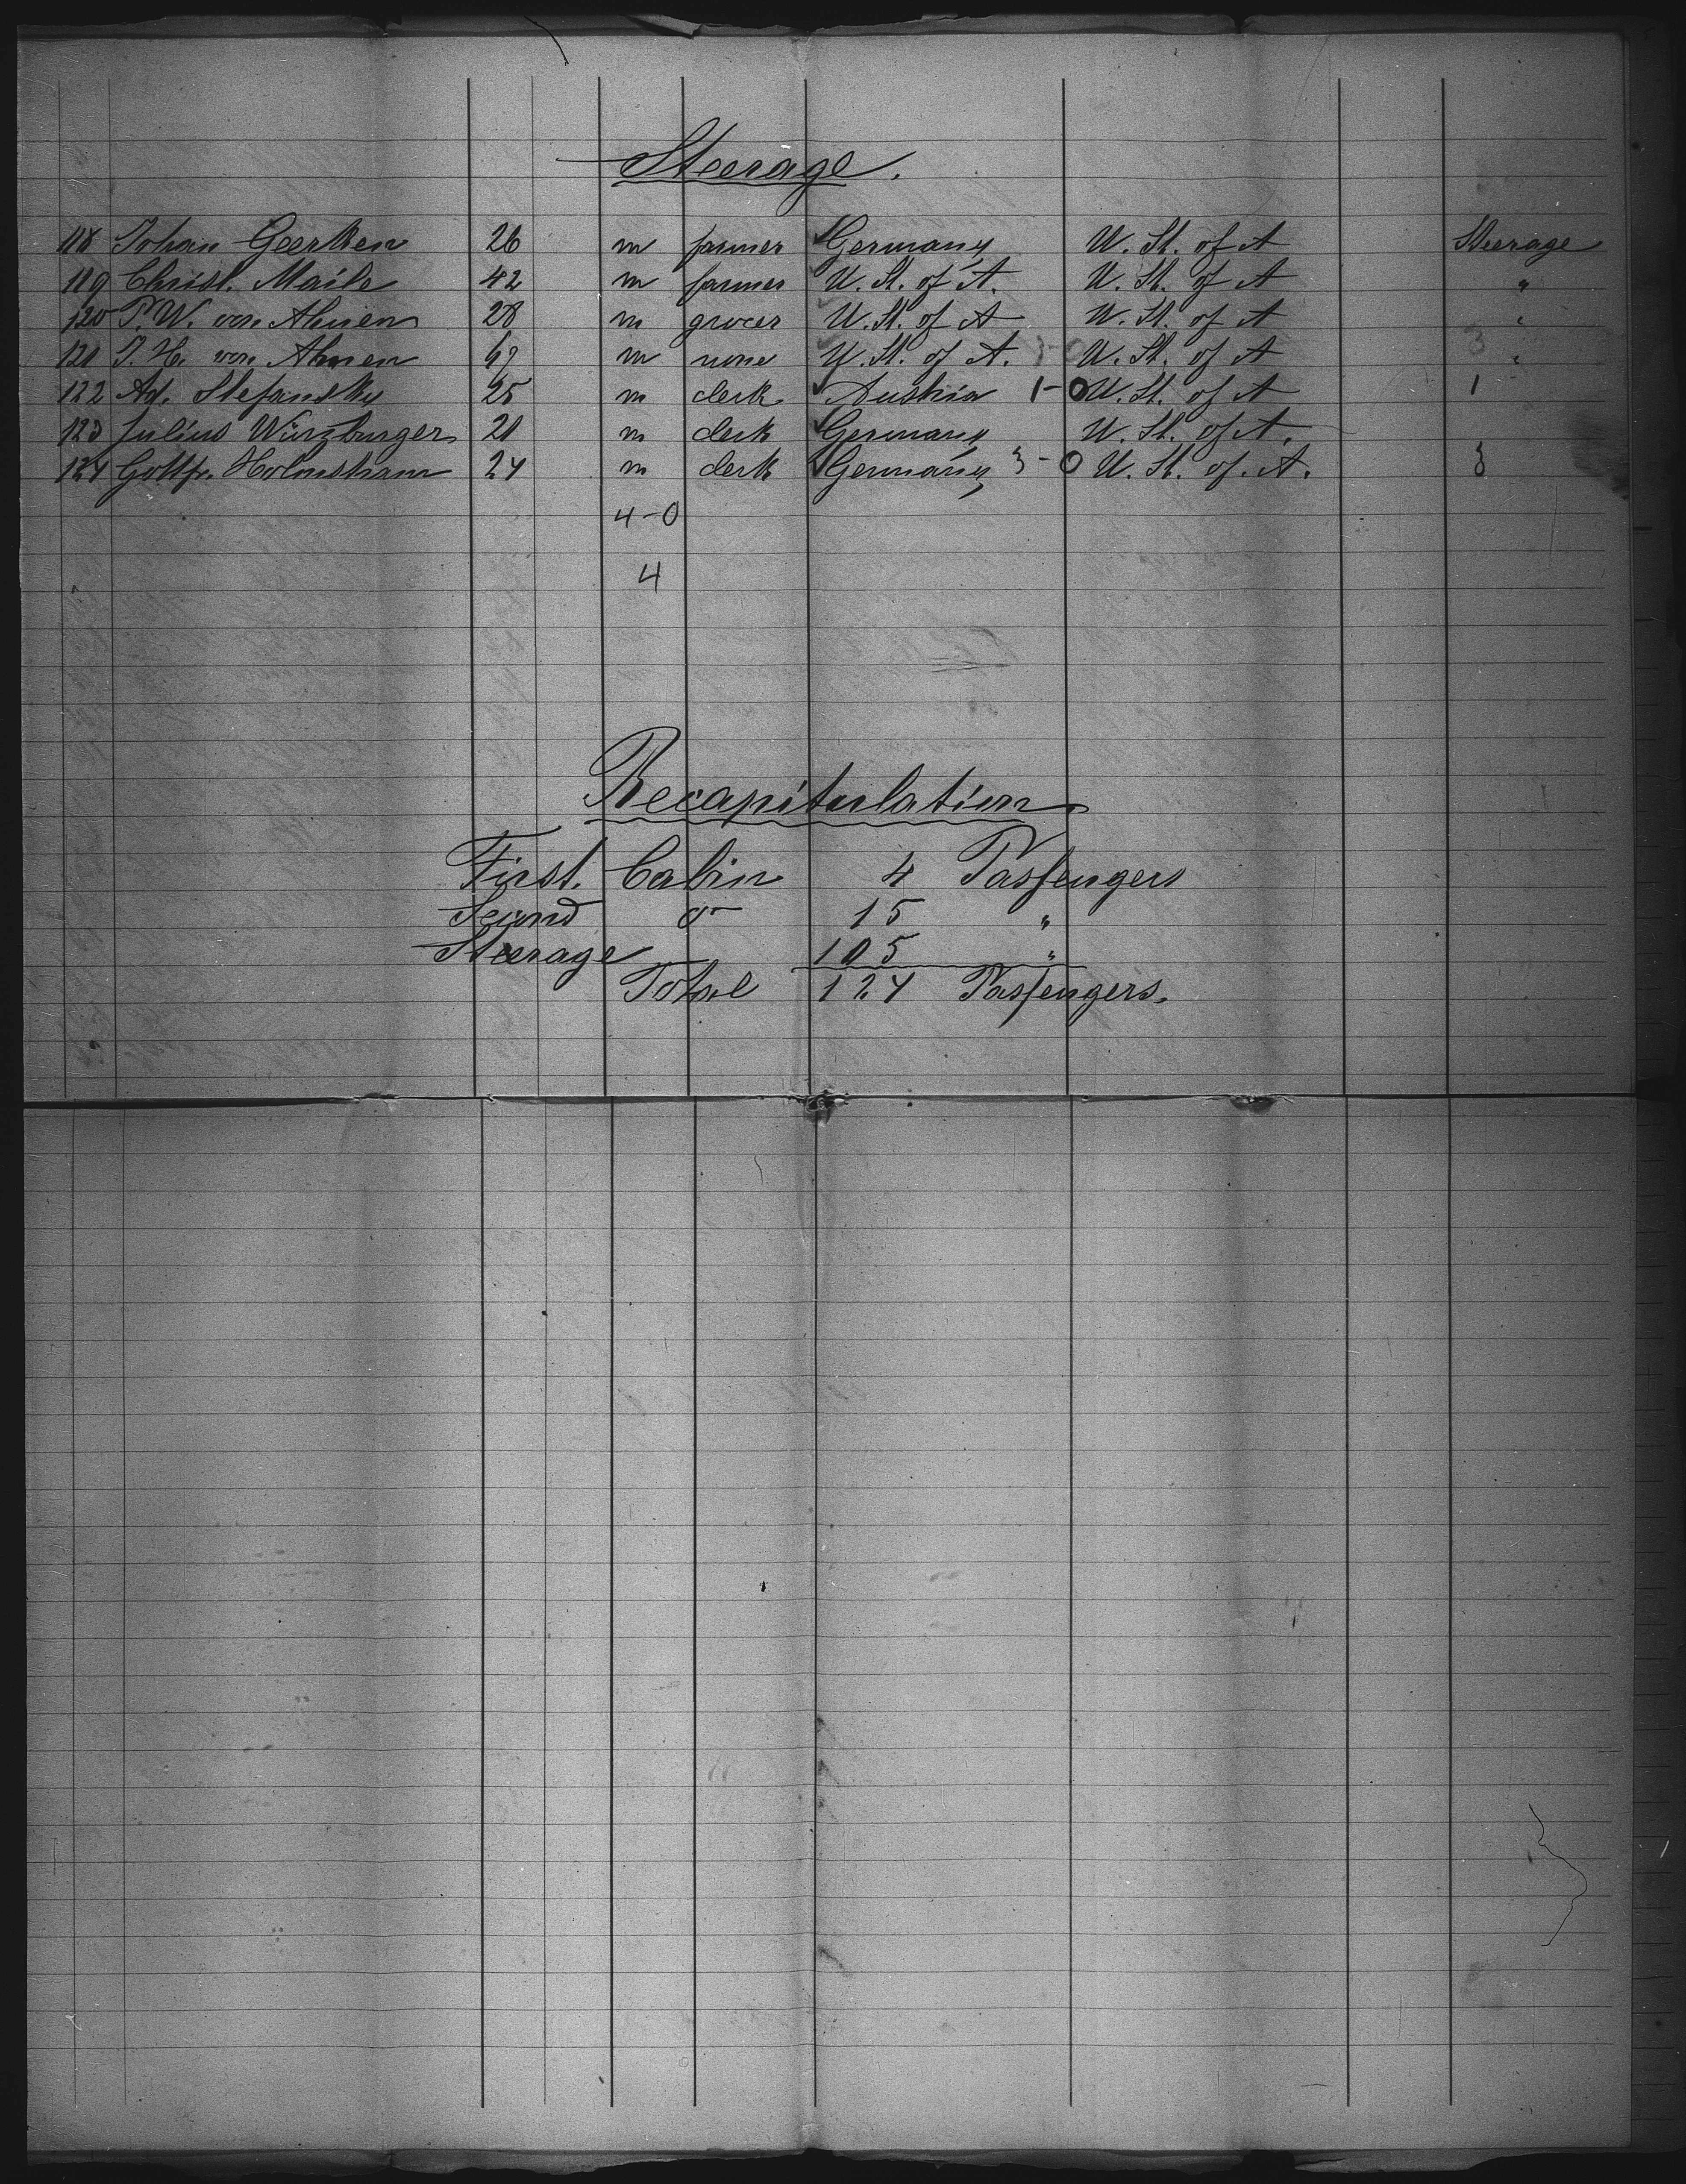 Steerage.
118 Johan Geerken 26 m farmer Germany U. St. of A Steerage
119 Christ. Maile 42 m farmer U. St. of A. U. St. of A "
120 P. W. von Ahnen 28 m grocer U. St. of A U. St. of A "
121 J. H. von Ahnen m none U. St. of A. U. St. of A " 3
122 Ad. Stefansky 25 m clerk Austria 1-0 U. St. of A 1
123 Julius Würzburger 21 m clerk Germany U. St. of A.
124 Gottfr. 24 m clerk Germany 3-0 U. St. of. A. 3
4-0
4
Recapitulation
First. Cabin 4 Passengers
Second 15 "
Steerage 105 "
Total 124 Passengers.